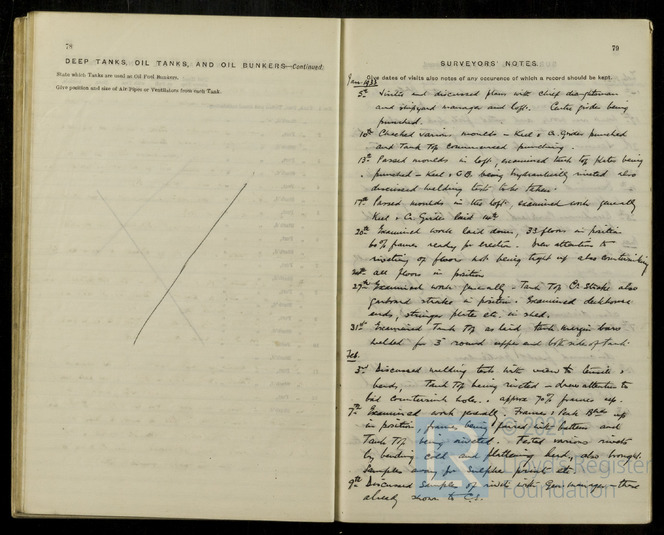 78
DEEP TANKS, OIL TANKS, AND OIL BUNKERS—Continued.
State which Tanks are used as Oil Fuel Bunkers.
Give position and size of Air Pipes or Ventilators from each Tank.
79
SURVEYORS' NOTES.
Give dates of visits also notes of any occurence of which a record should be kept.
Jan. 1938
5th Visits and discussed plans with chief draughtsman
and shipyard manager and loft. Centre girder being
punched.
10th Checked various moulds – Keel & Cr. Girder punched
and Tank Top commenced punching.
13th Passed moulds in loft, examined tank top plates being
punched – Keel & C.G. being hydraulically riveted also
discussed welding tests to be taken.
17th Passed moulds in the loft, examined work generally
Keel & Cr. Girder laid
20th Examined work laid down, 33 floors in position
60% frames ready for erection. Drew attention to
riveting of floors not being tight up also countersinking
all floors in position
27th Examined work generally – Tank Top Cr Strake also
garboard strake in position. Examined deckhouse
ends, stringer plate etc. in shed.
31st Examined Tank Top as laid tank margin bars
welded for 3" round upper and both sides of tank.
Feb.
3rd Discussed welding tests with view to tensile &
bends, Tank Top being riveted – drew attention to
bad countersunk holes. approx 70% frames up.
7th Examined work generally. Frames & Peak Bhds up
in position, frames being faired with battens and
Tank Top being riveted. Tested various rivets
by bending cold and flattening head, also brought
Samples away for Sulphur prints etc.
9th Discussed Samples of rivets with Gen. manager – those
already shown to C.S.
© 2021
Lloyd's Register
Foundation